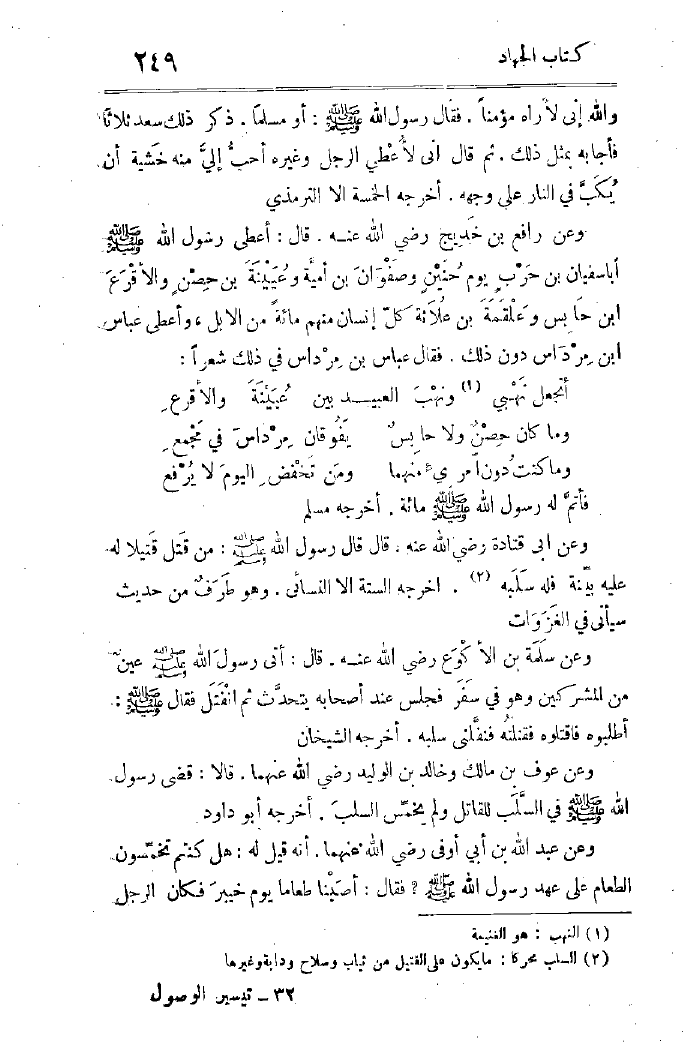 كتاب الجهاد ٢٤٩
والله إنى لأراه مؤمناً . فقال رسول الله ﷺ : أو مسلماً . ذكر ذلك سعد ثلاثا
فأجابه بمثل ذلك . ثم قال انى لأُعْطي الرجل وغيره أحبُّ إليَّ منه خَشية أن
يُكَبَّ في النار على وجهه . أخرجه الخمسة الا الترمذي
وعن رافع بن خَدِيج رضي الله عنه . قال : أعطى رسول الله ﷺ
أباسفيان بن حَرْب يوم حُنَيْنٍ وصفْوَانَ بن أمية وعُيَيْنَةَ بن حِصْنٍ والأقْرَعَ
ابن حَابِس وعَلْقَمَةَ بن عُلَاثة كلّ إنسان منهم مائةً من الابل ، وأعطى عباس
ابن مِرْدَاس دون ذلك . فقال عباس بن مِرْداس في ذلك شعراً :
أتجعل نَهْبي (١) ونَهْبَ العبيد بين عُيَيْنَةَ والأقرعِ
وما كان حِصْنٌ ولا حابِسٌ يَفُوقان مِرْدَاسَ في مَجْمعِ
وما كنتُ دُونَ امرىءٍ منهما ومَن تَخْفضِ اليومَ لا يُرْفعِ
فأتمَّ له رسول الله ﷺ مائة . أخرجه مسلم
وعن ابى قتادة رضي الله عنه ، قال قال رسول الله ﷺ : من قَتَل قَتِيلا له
عليه بيِّنة فله سَلَبه (٢) . اخرجه الستة الا النسائى . وهو طَرَفٌ من حديث
سيأتى في الغَزَوَات
وعن سَلَمَة بن الأكْوَع رضي الله عنه . قال : أتى رسولَ الله ﷺ عين
من المشركين وهو في سَفَر فجلس عند أصحابه يتحدَّث ثم انْفَتَل فقال ﷺ :
أطلبوه فاقتلوه فقتلتُه فنفَّلنى سلبه . أخرجه الشيخان
وعن عوف بن مالك وخالد بن الوليد رضي الله عنهما . قالا : قضى رسول
الله ﷺ في السَّلَب للقاتل ولم يخمِّس السلبَ . أخرجه أبو داود
وعن عبد الله بن أبي أوفى رضي الله عنهما . أنه قيل له : هل كنتم تخمِّسون
الطعام على عهد رسول الله ﷺ ؟ فقال : أصبْنا طعاما يوم خيبرَ فكان الرجل
(١) النهب : هو الغنيمة
(٢) السلب محركا : مايكون على القتيل من ثياب وسلاح ودابة وغيرها
٣٢ ـ تيسير الوصول